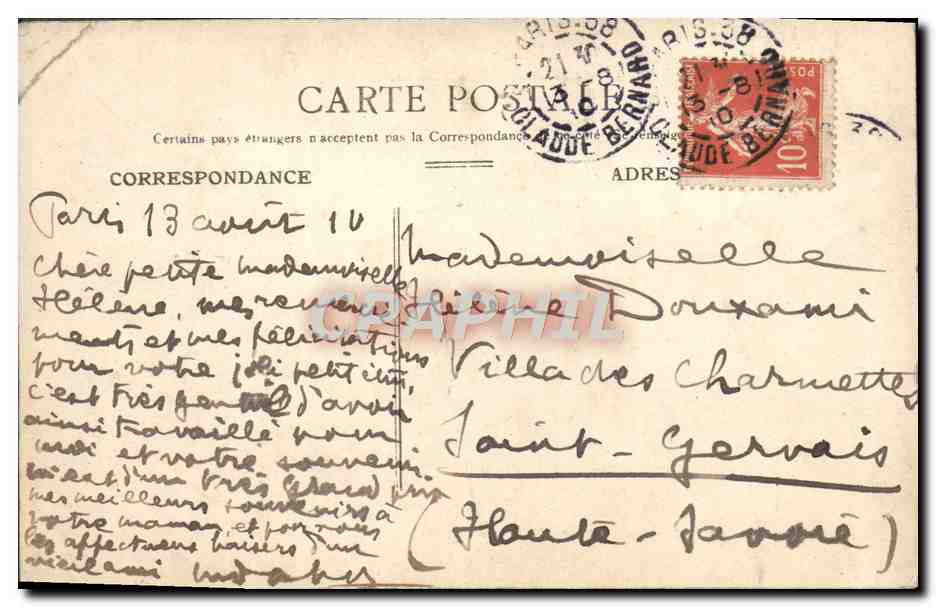 CARTE POSTALE
Certains pays étrangers n'acceptent pas la Correspondance de ce côté
CORRESPONDANCE
ADRES
PARIS-38
21 30
13 -8
10
CLAUDE BERNARD
PARIS-38
13 -8
10
CLAUDE BERNARD
POSTES
10
Paris 13 août 10
Chère petite mademoiselle
Hélène, mes remercie
ments et mes félicitations
pour votre joli petit étui,
c'est très gentil d'avoir
ainsi travaillé pour
moi et votre souvenir
m'est d'un très grand prix
mes meilleurs souvenirs à
votre maman et pour vous
les affectueux baisers d'un
vieil ami
Mademoiselle
Hélène Douxami
Villa des Charmettes
Saint-Gervais
(Haute-Savoie)
CPAPHIL